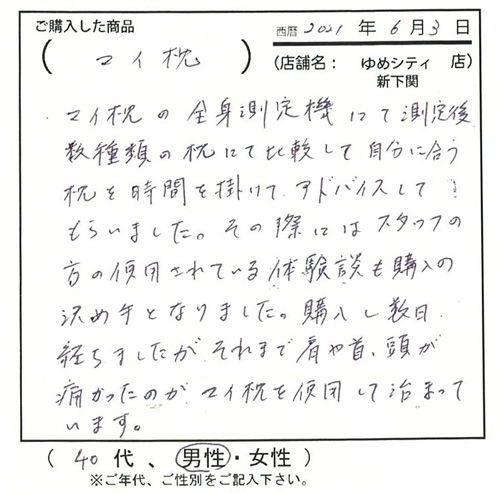 ご購入した商品
西暦 2021 年 6月3日
( マイ枕 )
(店舗名： ゆめシティ 店)
新下関
マイ枕の全身測定機にて測定後
数種類の枕にて比較して自分に合う
枕を時間を掛けて、アドバイスして
もらいました。その際にはスタッフの
方の使用されている体験談も購入の
決め手となりました。購入し数日
経ちましたがそれまで肩や首、頭が
痛かったのがマイ枕を使用して治まって
います。
( 40代、男性・女性 )
※ご年代、ご性別をご記入下さい。